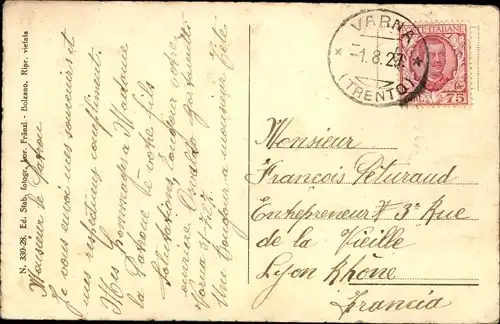 N. 330-28. Ed. Stab. fotogr. Lor. Fränzl - Bolzano. Ripr. vietata
Monsieur le Patron
Je vous envoi mes souvenirs et
mes respectueux compliments.
Mes hommages a Madame
la Patrone le votre fils
Salutations, toujour votre
ouvrier
Varna 31-7-27
Un Bonjour a monsieur
VARNA
-1.8.27
(TRENTO)
POSTE ITALIANE
75
Monsieur
François Péturaud
Entrepreneur 3 Rue
de la Vieille
Lyon Rhône
Francia